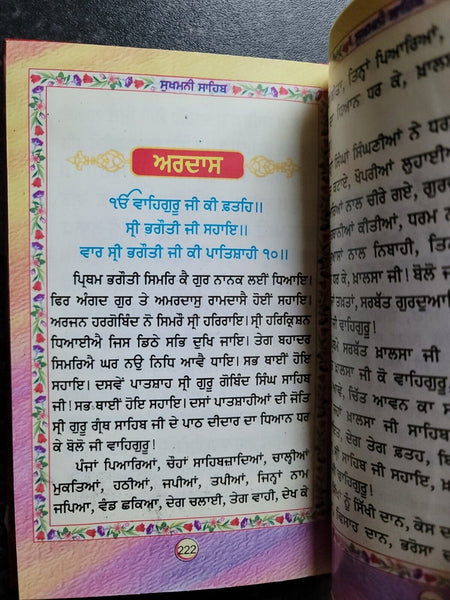 ਸੁਖਮਨੀ ਸਾਹਿਬ
ਅਰਦਾਸ
ੴ ਵਾਹਿਗੁਰੂ ਜੀ ਕੀ ਫ਼ਤਹਿ॥
ਸ੍ਰੀ ਭਗੌਤੀ ਜੀ ਸਹਾਇ॥
ਵਾਰ ਸ੍ਰੀ ਭਗੌਤੀ ਜੀ ਕੀ ਪਾਤਿਸ਼ਾਹੀ ੧੦॥
ਪ੍ਰਿਥਮ ਭਗੌਤੀ ਸਿਮਰਿ ਕੈ ਗੁਰ ਨਾਨਕ ਲਈਂ ਧਿਆਇ।
ਫਿਰ ਅੰਗਦ ਗੁਰ ਤੇ ਅਮਰਦਾਸੁ ਰਾਮਦਾਸੈ ਹੋਈਂ ਸਹਾਇ।
ਅਰਜਨ ਹਰਗੋਬਿੰਦ ਨੋ ਸਿਮਰੌ ਸ੍ਰੀ ਹਰਿਰਾਇ। ਸ੍ਰੀ ਹਰਿਕ੍ਰਿਸ਼ਨ
ਧਿਆਈਐ ਜਿਸ ਡਿਠੇ ਸਭਿ ਦੁਖਿ ਜਾਇ। ਤੇਗ ਬਹਾਦਰ
ਸਿਮਰਿਐ ਘਰ ਨਉ ਨਿਧਿ ਆਵੈ ਧਾਇ। ਸਭ ਥਾਈਂ ਹੋਇ
ਸਹਾਇ। ਦਸਵੇਂ ਪਾਤਸ਼ਾਹ ਸ੍ਰੀ ਗੁਰੂ ਗੋਬਿੰਦ ਸਿੰਘ ਸਾਹਿਬ
ਜੀ! ਸਭ ਥਾਈਂ ਹੋਇ ਸਹਾਇ। ਦਸਾਂ ਪਾਤਸ਼ਾਹੀਆਂ ਦੀ ਜੋਤਿ
ਸ੍ਰੀ ਗੁਰੂ ਗ੍ਰੰਥ ਸਾਹਿਬ ਜੀ ਦੇ ਪਾਠ ਦੀਦਾਰ ਦਾ ਧਿਆਨ ਧਰ
ਕੇ ਬੋਲੋ ਜੀ ਵਾਹਿਗੁਰੂ!
ਪੰਜਾਂ ਪਿਆਰਿਆਂ, ਚੌਹਾਂ ਸਾਹਿਬਜ਼ਾਦਿਆਂ, ਚਾਲ੍ਹੀਆਂ
ਮੁਕਤਿਆਂ, ਹਠੀਆਂ, ਜਪੀਆਂ, ਤਪੀਆਂ, ਜਿਨ੍ਹਾਂ ਨਾਮ
ਜਪਿਆ, ਵੰਡ ਛਕਿਆ, ਦੇਗ ਚਲਾਈ, ਤੇਗ ਵਾਹੀ, ਦੇਖ ਕੇ
222
ਤਿਨ੍ਹਾਂ ਪਿਆਰਿਆਂ,
ਧਿਆਨ ਧਰ ਕੇ, ਖ਼ਾਲਸਾ
ਸਿੰਘਾਂ ਸਿੰਘਣੀਆਂ ਨੇ ਧਰਮ
ਕਟਾਏ, ਖੋਪਰੀਆਂ ਲੁਹਾਈਆਂ
ਨਾਲ ਚੀਰੇ ਗਏ, ਗੁਰਦੁ
ਕੀਤੀਆਂ, ਧਰਮ ਨ
ਨਾਲ ਨਿਬਾਹੀ, ਤਿ
ਕੇ, ਖ਼ਾਲਸਾ ਜੀ! ਬੋਲੋ ਜੀ
ਤਖ਼ਤਾਂ, ਸਰਬੱਤ ਗੁਰਦੁਆਰਿ
ਜੀ ਵਾਹਿਗੁਰੂ!
ਸਰਬੱਤ ਖ਼ਾਲਸਾ ਜੀ
ਜੀ ਕੋ ਵਾਹਿਗੁਰੂ,
ਚਿੱਤ ਆਵਨ ਕਾ ਸ
ਦੇਗ ਤੇਗ ਫ਼ਤਹ, ਬਿ
ਜੀ ਸਹਾਇ, ਖ਼
ਵਾਹਿਗੁਰੂ!
ਨੂੰ ਸਿੱਖੀ ਦਾਨ, ਕੇਸ ਦਾ
ਵਿਸਾਹ ਦਾਨ, ਭਰੋਸਾ ਦਾ